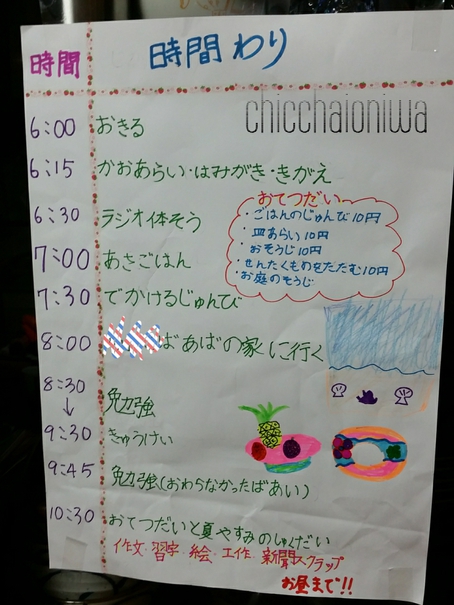 時間 時間わり
chicchaioniwa
6:00 おきる
6:15 かおあらい・はみがき・きがえ
6:30 ラジオ体そう
おてつだい
・ごはんのじゅんび10円
・皿あらい10円
・おそうじ10円
・せんたくものをたたむ10円
・お庭のそうじ
7:00 あさごはん
7:30 でかけるじゅんび
8:00 ばあばの家に行く
8:30
↓ 勉強
9:30 きゅうけい
9:45 勉強(おわらなかったばあい)
10:30 おてつだいと夏やすみのしゅくだい
作文・習字・絵・工作・新聞スクラップ
お昼まで!!